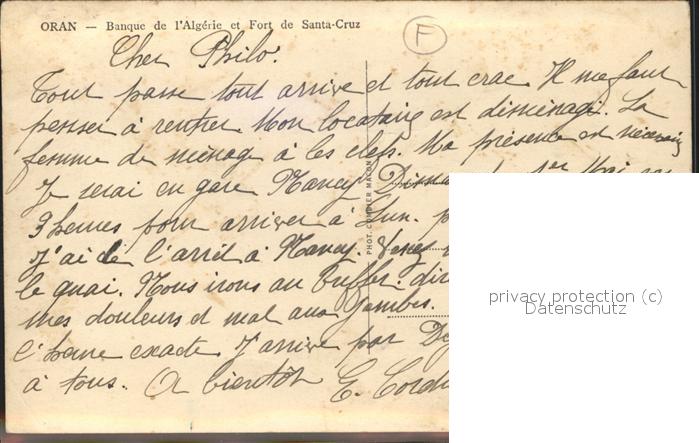 ORAN — Banque de l'Algérie et Fort de Santa-Cruz
F
Cher Philo.
Tout passe tout arrive et tout crae. Il me faut
penser à rentrer. Mon locataire est déménagé. La
femme de ménage à les clefs. Ma présence est nécessaire
Je serai en gare Nancy Dim 1er Mai
9 heures pour arriver à Lun.
J'ai de l'arrêt à Nancy. Venez
le quai. Nous irons au buffet.
mes douleurs et mal aux jambes.
l'heure exacte. J'arrive par
à tous. A bientôt E.
PHOT. COMBIER MACON
privacy protection (c)
Datenschutz